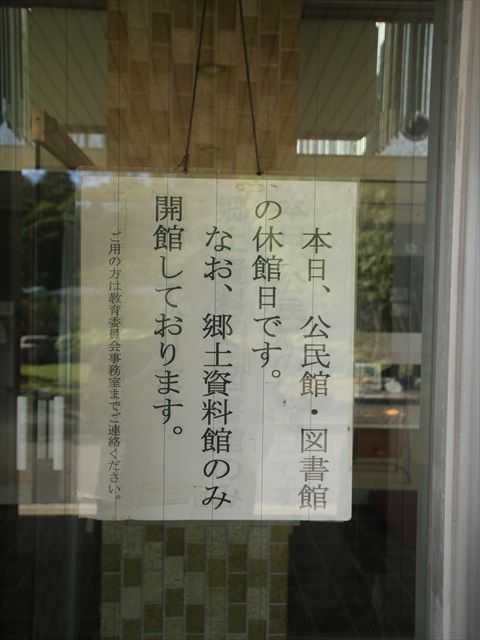 本日、公民館・図書館
の休館日です。
なお、郷土資料館のみ
開館しております。
ご用の方は教育委員会事務室までご連絡ください。